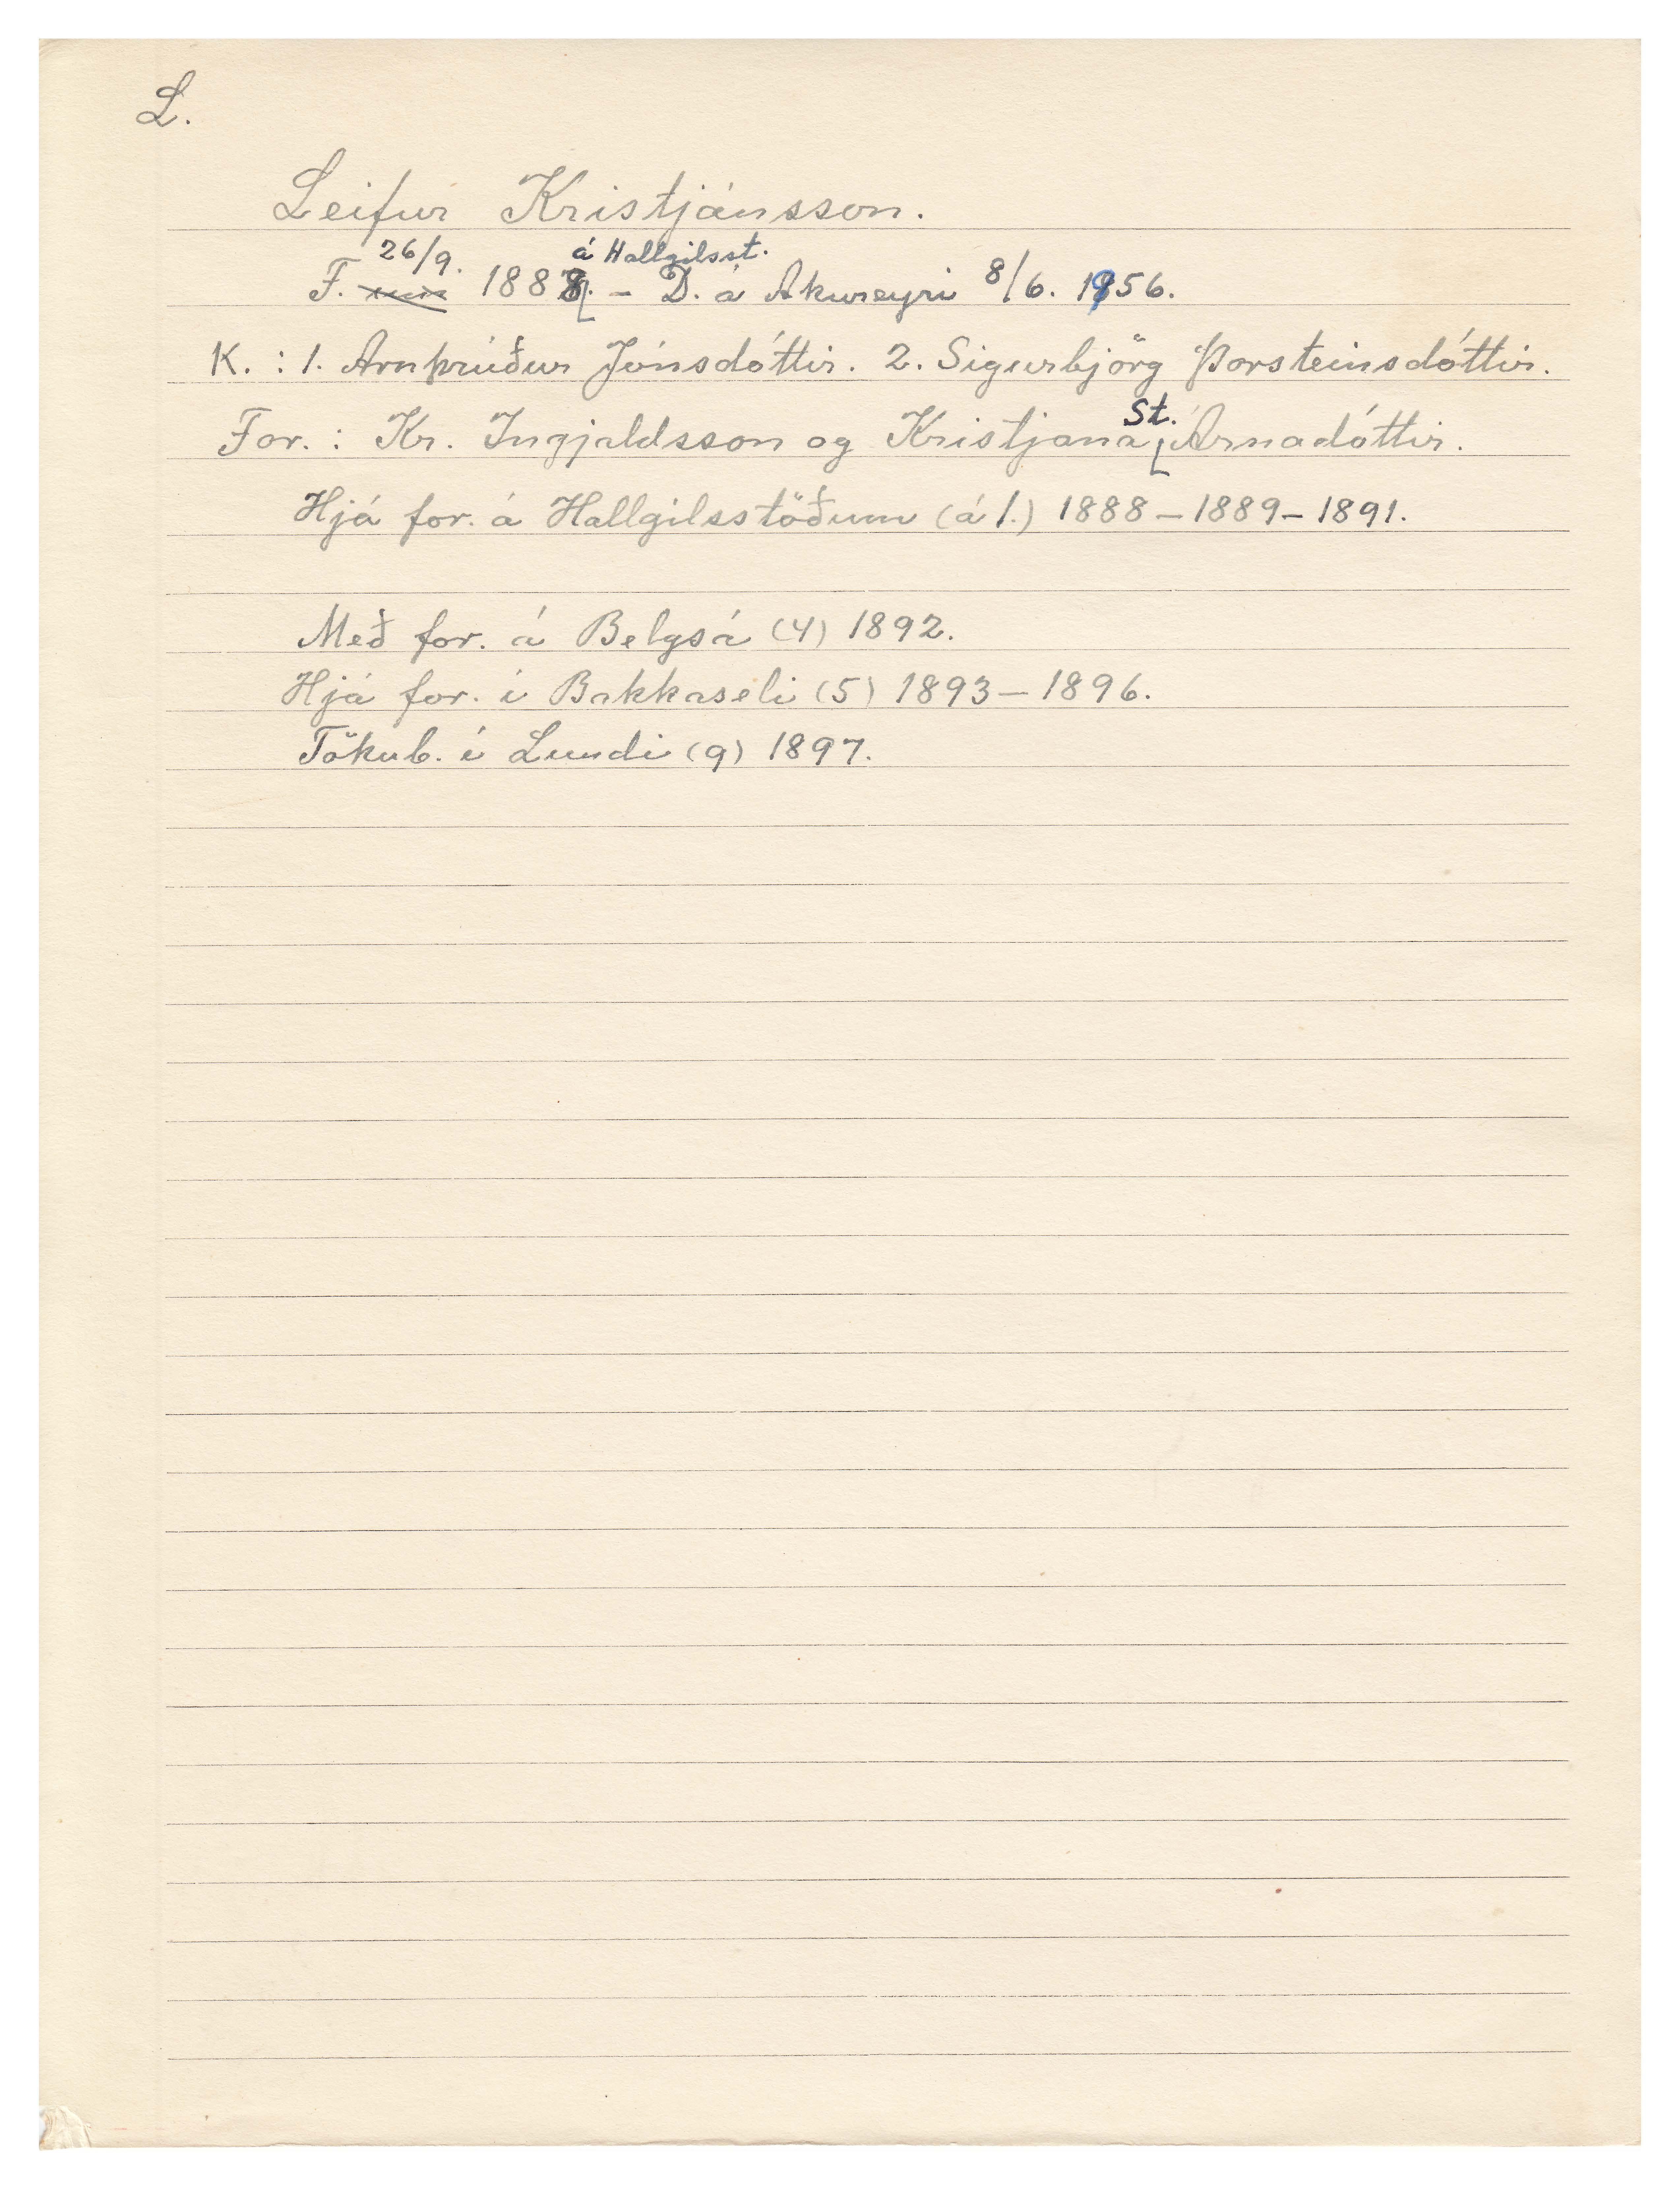 L.
Leifur Kristjánsson.
26/9. á Hallgilsst.
F. 1888. – D. á Akureyri 8/6. 1956.
K. : 1. Arnþrúður Jónsdóttir. 2. Sigurbjörg Þorsteinsdóttir.
St.
For. : Kr. Ingjaldsson og Kristjana Árnadóttir.
Hjá for. á Hallgilsstöðum (á 1.) 1888 – 1889 – 1891.
Með for. á Belgsá (4) 1892.
Hjá for. í Bakkaseli (5) 1893 – 1896.
Tökub. í Lundi (9) 1897.